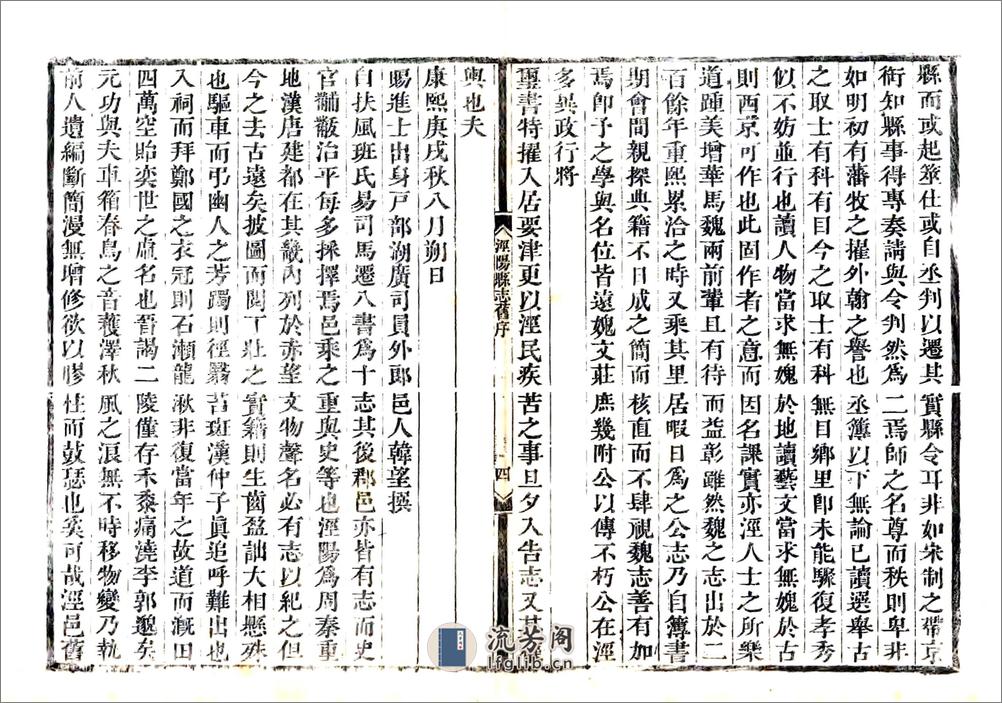 縣而或起筮仕或自丞判以遷其實縣令耳非如宋制之帶京
銜知縣事得專奏請與令判然為二焉師之名尊而秩則卑非
如明初有藩牧之擢外翰之譽也丞簿以下無論已讀選舉古
之取士有科有目今之取士有科無目鄉里卽未能驟復孝秀
似不妨並行也讀人物當求無媿於地讀藝文當求無媿於古
則西京可作也此固作者之意而因名課實亦涇人士之所樂
道踵美增華馬魏兩前輩且有待而益彰雖然魏之志出於二
百餘年重熙累洽之時又乘其里居暇日為之公志乃自簿書
期會間親探典籍不日成之簡而核直而不肆視魏志善有加
焉卽予之學與名位皆遠媿文莊庶幾附公以傳不朽公在涇
多異政行將
璽書特擢入居要津更以涇民疾苦之事旦夕入告志又其
輿也夫
康熙庚戌秋八月朔日
賜進士出身戸部湖廣司員外郎邑人韓望撰
自扶風班氏易司馬遷八書為十志其後郡邑亦皆有志而史
官黼黻治平每多採擇焉邑乘之重與史等也涇陽為周秦重
地漢唐建都在其畿內列於赤望文物聲名必有志以紀之但
今之去古遠矣披圖而閱丁壯之實籍則生齒盈詘大相懸殊
也驅車而弔幽人之芳躅則徑翳苔斑漢仲子眞追呼難出也
入祠而拜鄭國之衣冠則石瀨龍湫非復當年之故道而溉田
四萬空貽奕世之虛名也晉謁二陵僅存禾黍痛澆李郭邈矣
元功與夫車箱春鳥之音蒦澤秋風之浪無不時移物變乃執
前人遺編斷簡漫無增修欲以膠柱而鼓瑟也奚可哉涇邑舊
涇陽縣志舊序
四
流芳阁
lfglib.cn